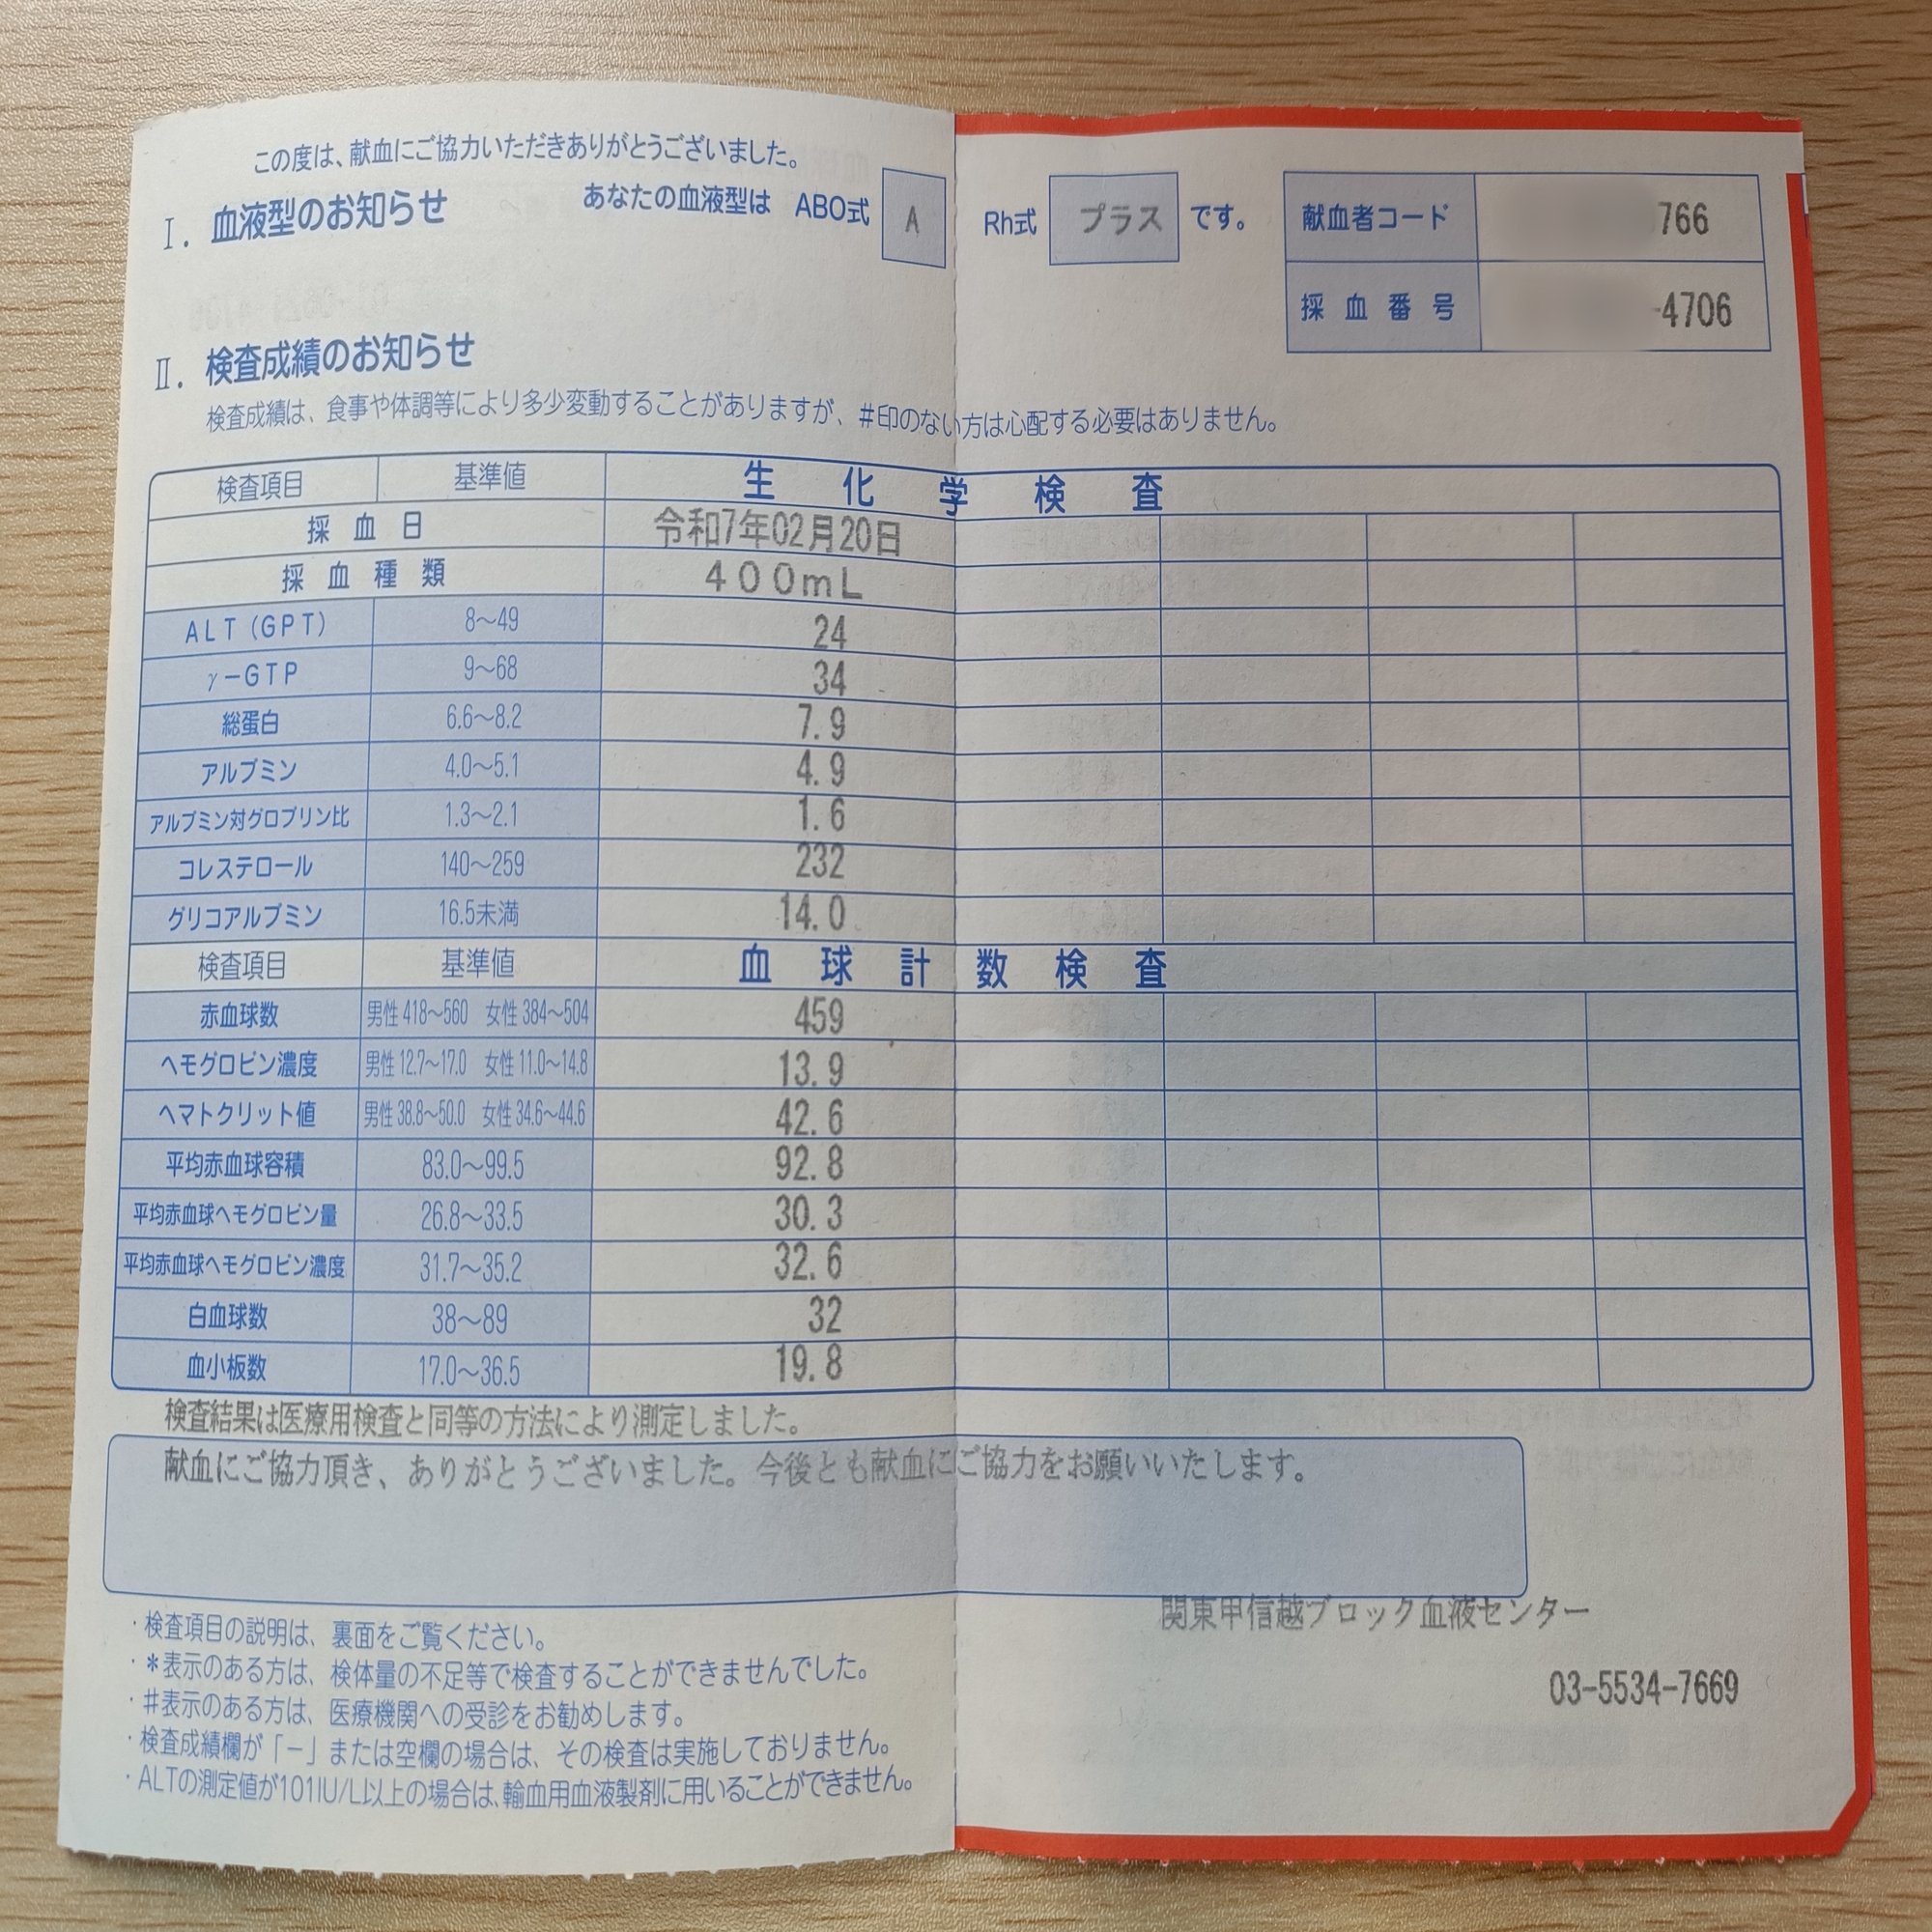 この度は、献血にご協力いただきありがとうございました。
Ⅰ. 血液型のお知らせ あなたの血液型は ABO式 A Rh式 プラス です。
献血者コード 766
採血番号 -4706
Ⅱ. 検査成績のお知らせ
検査成績は、食事や体調等により多少変動することがありますが、#印のない方は心配する必要はありません。
検査項目 基準値 生化学検査
採血日 令和7年02月20日
採血種類 400mL
ALT(GPT) 8～49 24
γ-GTP 9～68 34
総蛋白 6.6～8.2 7.9
アルブミン 4.0～5.1 4.9
アルブミン対グロブリン比 1.3～2.1 1.6
コレステロール 140～259 232
グリコアルブミン 16.5未満 14.0
検査項目 基準値 血球計数検査
赤血球数 男性418～560 女性384～504 459
ヘモグロビン濃度 男性12.7～17.0 女性11.0～14.8 13.9
ヘマトクリット値 男性38.8～50.0 女性34.6～44.6 42.6
平均赤血球容積 83.0～99.5 92.8
平均赤血球ヘモグロビン量 26.8～33.5 30.3
平均赤血球ヘモグロビン濃度 31.7～35.2 32.6
白血球数 38～89 32
血小板数 17.0～36.5 19.8
検査結果は医療用検査と同等の方法により測定しました。
献血にご協力頂き、ありがとうございました。今後とも献血にご協力をお願いいたします。
関東甲信越ブロック血液センター
03-5534-7669
・検査項目の説明は、裏面をご覧ください。
・＊表示のある方は、検体量の不足等で検査することができませんでした。
・#表示のある方は、医療機関への受診をお勧めします。
・検査成績欄が「－」または空欄の場合は、その検査は実施しておりません。
・ALTの測定値が101IU/L以上の場合は、輸血用血液製剤に用いることができません。